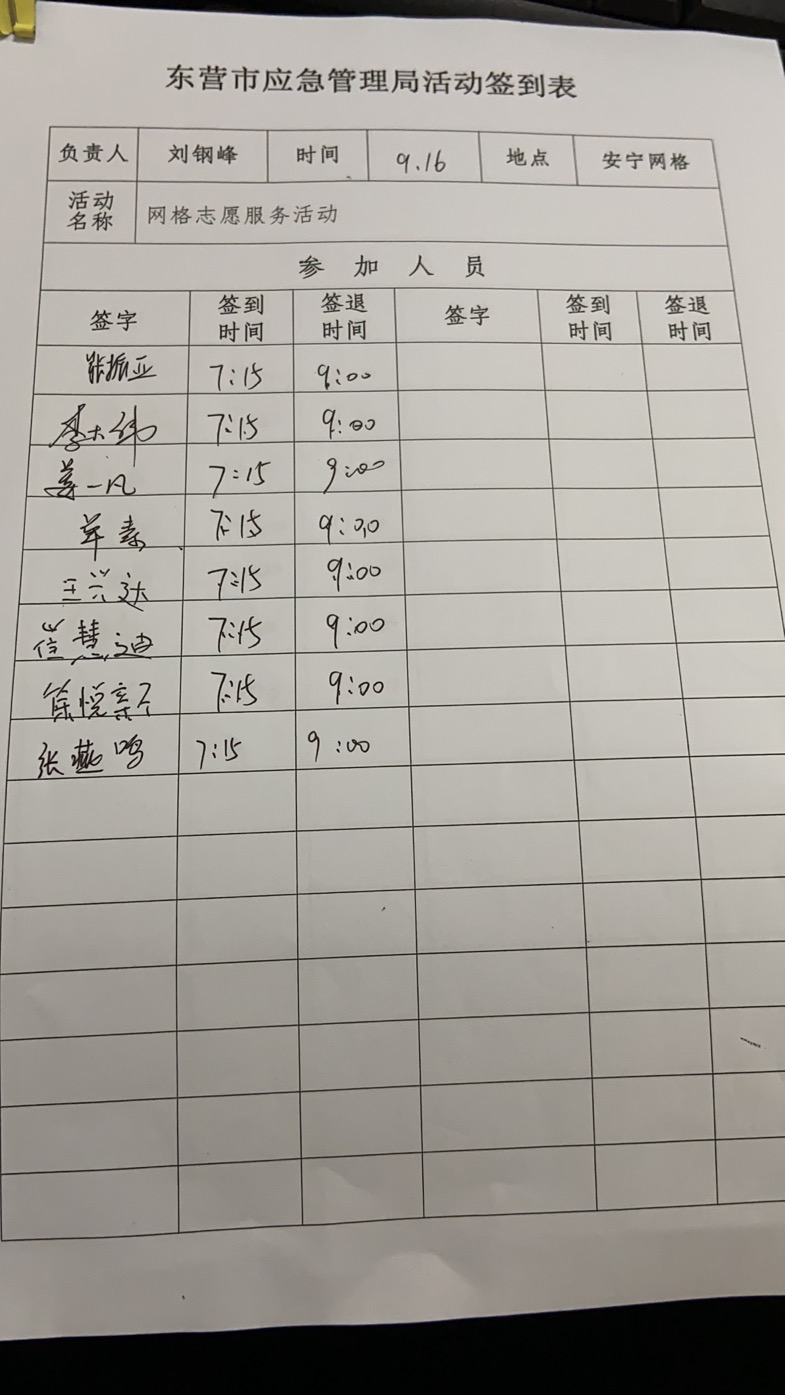 东营市应急管理局活动签到表
负责人 刘钢峰 时间 9.16 地点 安宁网格
活动名称 网格志愿服务活动
参加人员
签字 签到时间 签退时间 签字 签到时间 签退时间
张振亚 7:15 9:00
李大伟 7:15 9:00
姜一凡 7:15 9:00
7:15 9:00
王兴达 7:15 9:00
崔慧迪 7:15 9:00
徐悦 7:15 9:00
张燕鸣 7:15 9:00